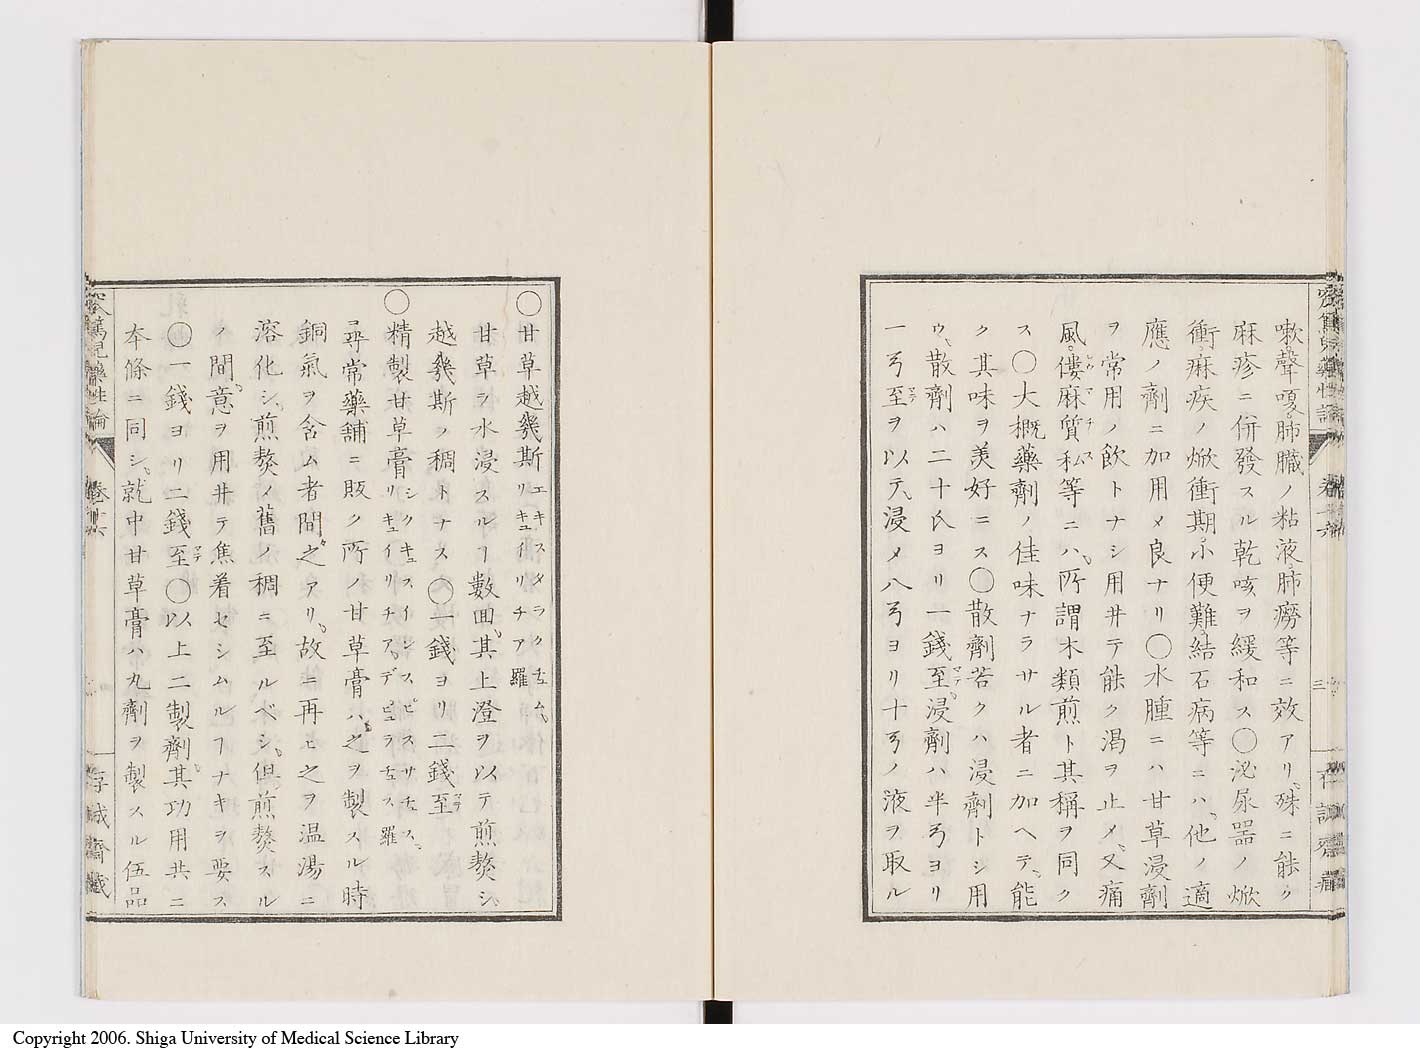 嗽聲嗄肺臓ノ粘液肺癆等ニ效アリ殊ニ能ク
麻疹ニ併發スル乾咳ヲ緩和ス〇泌尿器ノ焮
衝痳疾ノ焮衝期小便難結石病等ニハ他ノ適
應ノ劑ニ加用メ良ナリ〇水腫ニハ甘草浸劑
ヲ常用ノ飲トナシ用井テ能ク渇ヲ止メ又痛
風僂麻質私等ニハ所謂木類煎ト其稱ヲ同ク
ス〇大概藥劑ノ佳味ナラサル者ニ加ヘテ能
ク其味ヲ美好ニス〇散劑若クハ浸劑トシ用
ウ散劑ハ二十氏ヨリ一錢至浸劑ハ半弓ヨリ
一弓至ヲ以テ浸メ八弓ヨリ十弓ノ液ヲ取ル
〇甘草越幾斯 エキスタラクチュム リキュイリチア 羅
甘草ヲ水浸スルヿ數回其上澄ヲ以テ煎熬シ
越幾斯ノ稠トナス〇一錢ヨリ二錢至マデ
〇精製甘草膏 シクキュスインスピスサチュス リキュイリチアデピュラチュス 羅
尋常藥舗ニ販ク所ノ甘草膏ハ之ヲ製スル時
銅氣ヲ含ム者間之アリ故ニ再ヒ之ヲ温湯ニ
溶化シ煎熬メ舊ノ稠ニ至ルベシ但煎熬スル
ノ間意ヲ用井テ焦着セシムルヿナキヲ要ス
〇一錢ヨリ二錢至マデ〇以上二製劑其功用共ニ
本條ニ同シ就中甘草膏ハ丸劑ヲ製スル伍品
藥性論
卷十六
存誠齋藏
Copyright 2006. Shiga University of Medical Science Library